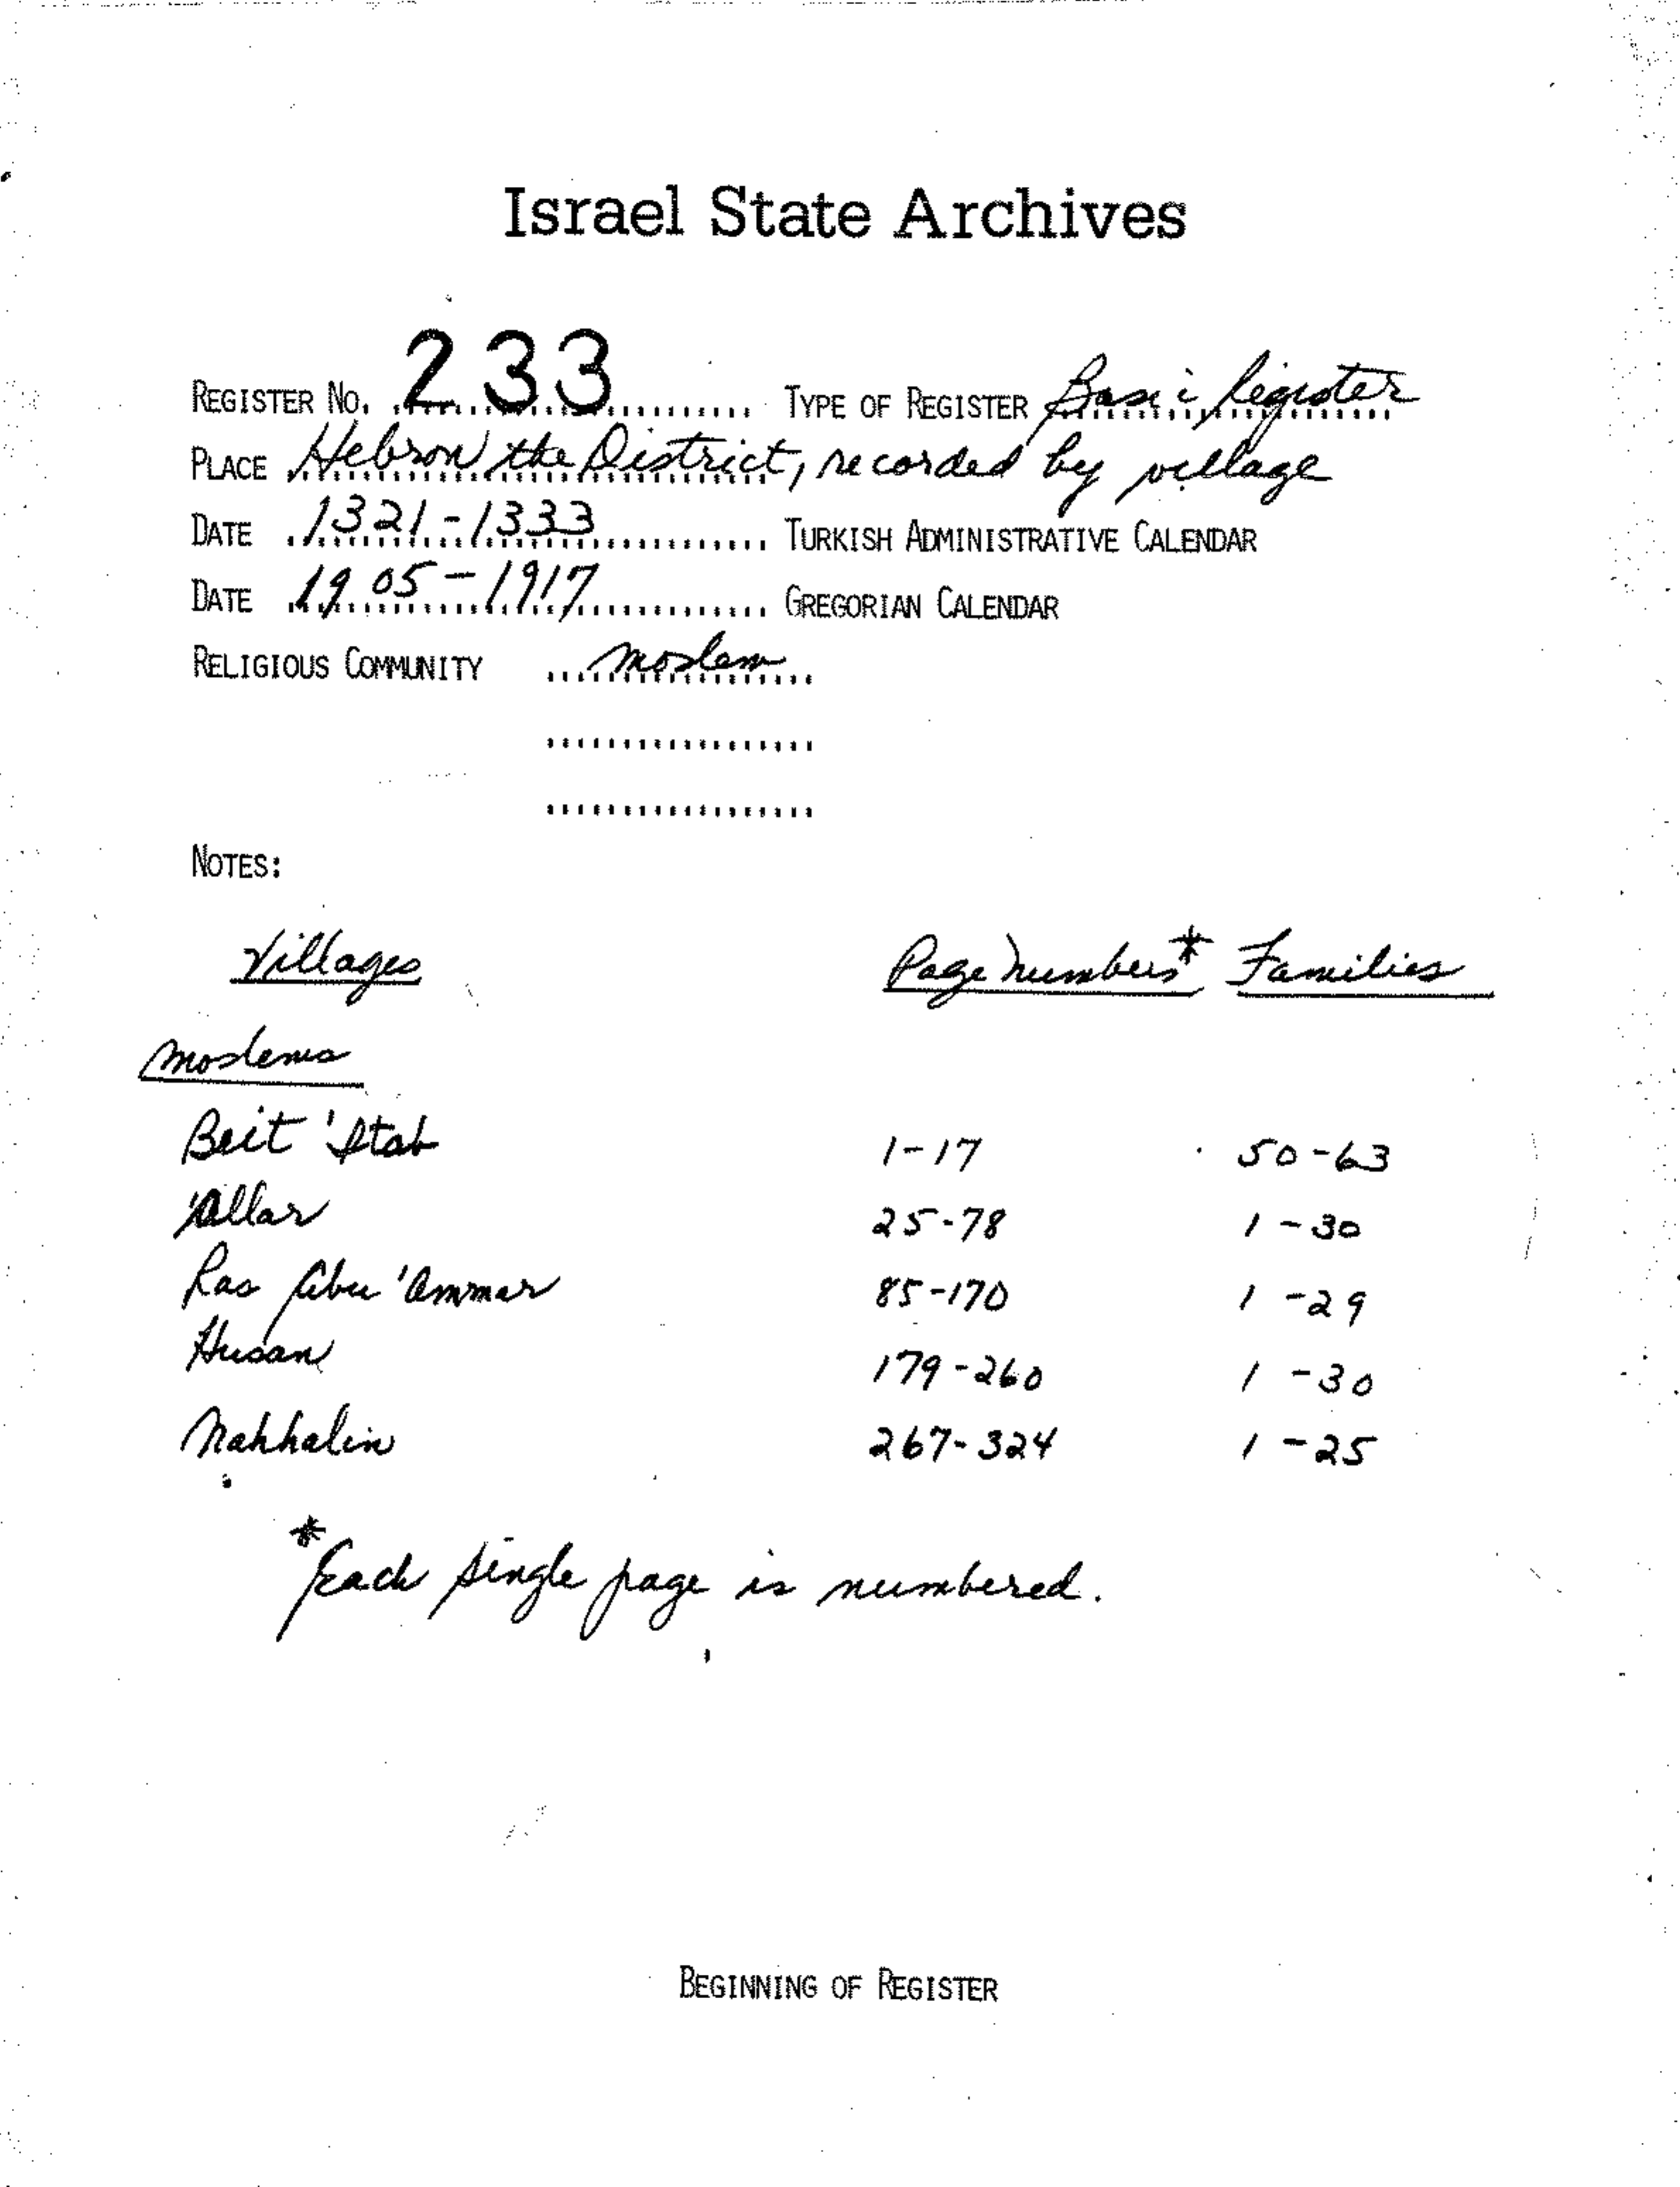 Israel State Archives
REGISTER NO. 233 TYPE OF REGISTER Basic Register
PLACE Hebron the District, recorded by village
DATE 1321-1333 TURKISH ADMINISTRATIVE CALENDAR
DATE 1905-1917 GREGORIAN CALENDAR
RELIGIOUS COMMUNITY Moslem
NOTES:
Villages Page Numbers* Families
Moslems
Beit 'Itab 1-17 50-63
'Allar 25-78 1-30
Ras Abu 'Ammar 85-170 1-29
Husan 179-260 1-30
Nahhalin 267-324 1-25
*Each single page is numbered.
BEGINNING OF REGISTER